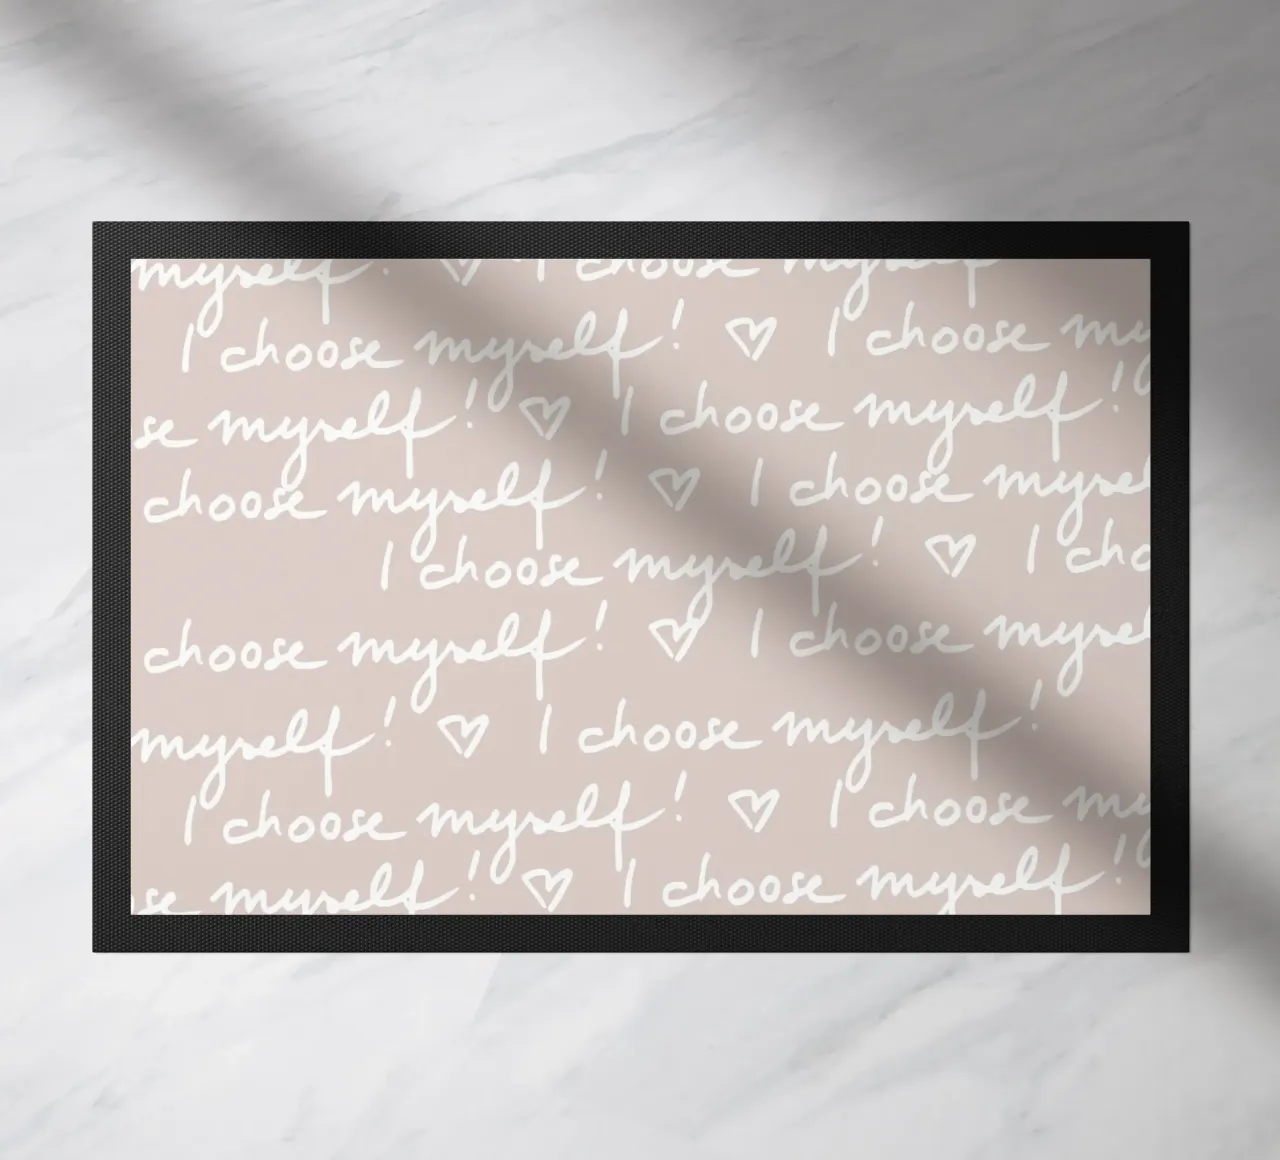 myself! ♡ I choose myself
I choose myself! ♡ I choose my
se myself! ♡ I choose myself!
choose myself! ♡ I choose mysel
I choose myself! ♡ I cho
choose myself! ♡ I choose myse
myself! ♡ I choose myself!
I choose myself! ♡ I choose my
se myself! ♡ I choose myself!